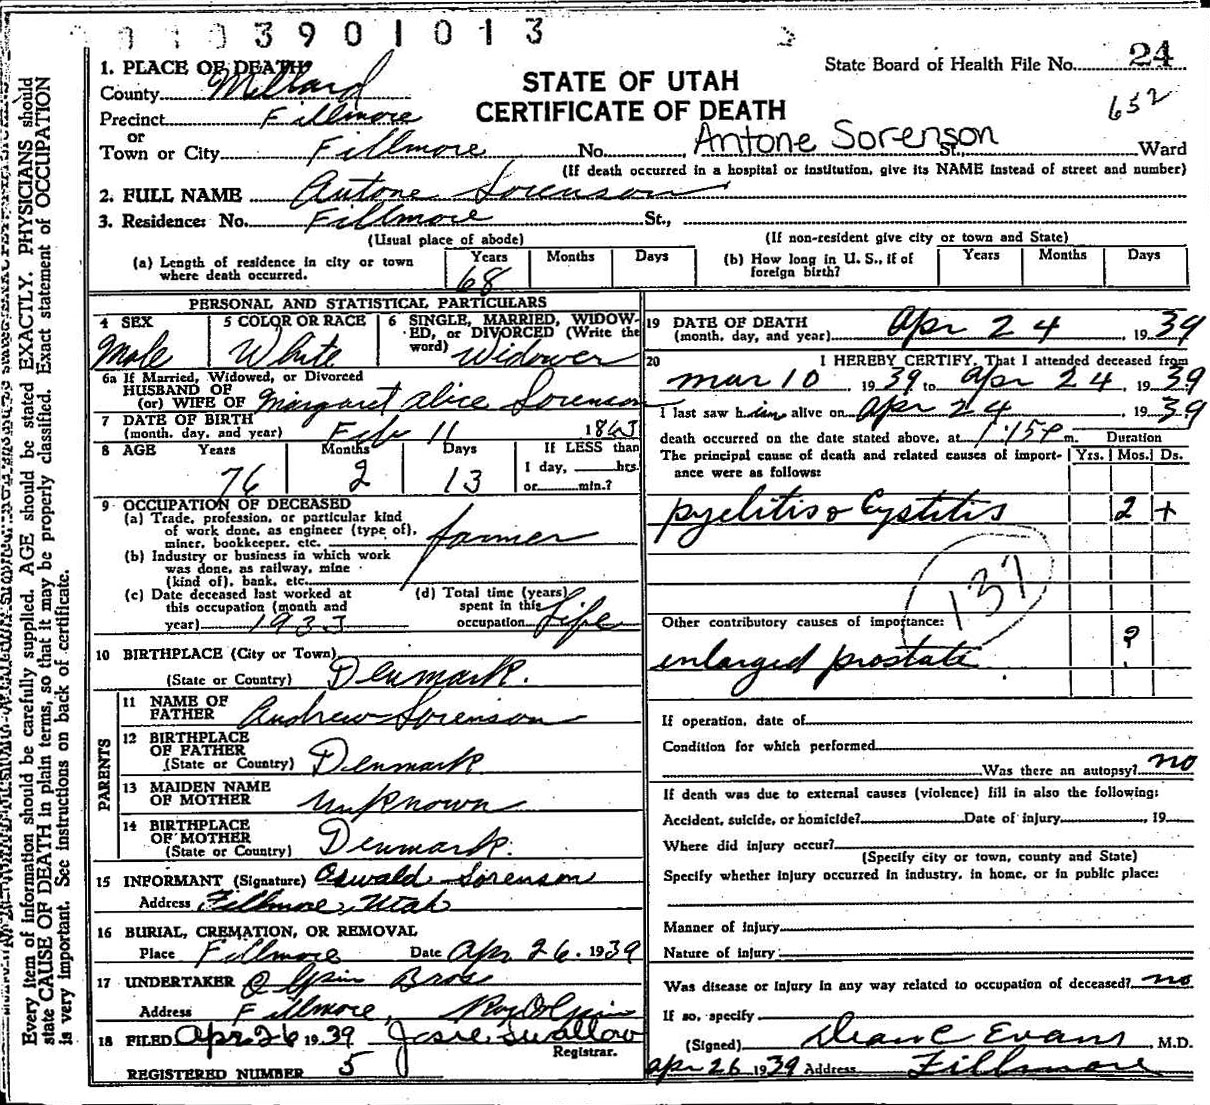 3901013
State Board of Health File No. 24
652
STATE OF UTAH
CERTIFICATE OF DEATH
1. PLACE OF DEATH
County Millard
Precinct Fillmore
or
Town or City Fillmore No. St., Ward
Antone Sorenson
(If death occurred in a hospital or institution, give its NAME instead of street and number)
2. FULL NAME Antone Sorenson
3. Residence: No. Fillmore St.,
(Usual place of abode) (If non-resident give city or town and State)
(a) Length of residence in city or town where death occurred. Years 68 Months Days
(b) How long in U. S., if of foreign birth? Years Months Days
PERSONAL AND STATISTICAL PARTICULARS
4 SEX Male
5 COLOR OR RACE White
6 SINGLE, MARRIED, WIDOWED, or DIVORCED (Write the word) Widower
6a If Married, Widowed, or Divorced
HUSBAND OF
(or) WIFE OF Margaret Alice Sorenson
7 DATE OF BIRTH
(month, day, and year) Feb 11 1863
8 AGE Years 76 Months 2 Days 13
If LESS than 1 day, hrs. or min.?
9 OCCUPATION OF DECEASED
(a) Trade, profession, or particular kind of work done, as engineer (type of), miner, bookkeeper, etc. farmer
(b) Industry or business in which work was done, as railway, mine (kind of), bank, etc.
(c) Date deceased last worked at this occupation (month and year) 1933
(d) Total time (years) spent in this occupation Life
10 BIRTHPLACE (City or Town)
(State or Country) Denmark.
PARENTS
11 NAME OF FATHER Andrew Sorenson
12 BIRTHPLACE OF FATHER
(State or Country) Denmark
13 MAIDEN NAME OF MOTHER Unknown
14 BIRTHPLACE OF MOTHER
(State or Country) Denmark.
15 INFORMANT (Signature) Oswald Sorenson
Address Fillmore, Utah
16 BURIAL, CREMATION, OR REMOVAL
Place Fillmore Date Apr 26. 1939
17 UNDERTAKER Olpin Bros
Address Fillmore, Roy Olpin
18 FILED Apr. 26 1939 Swallow
Registrar.
REGISTERED NUMBER 5
19 DATE OF DEATH
(month, day, and year) Apr 24 1939
20 I HEREBY CERTIFY, That I attended deceased from
Mar 10, 1939 to Apr 24, 1939
I last saw him alive on Apr 24, 1939
death occurred on the date stated above, at 1:15P m. Duration
The principal cause of death and related causes of importance were as follows: Yrs. Mos. Ds.
pyelitis & Cystitis 2 +
137
Other contributory causes of importance:
enlarged prostate ?
If operation, date of
Condition for which performed
Was there an autopsy? no
If death was due to external causes (violence) fill in also the following:
Accident, suicide, or homicide? Date of injury , 19
Where did injury occur?
(Specify city or town, county and State)
Specify whether injury occurred in industry, in home, or in public place:
Manner of injury
Nature of injury
Was disease or injury in any way related to occupation of deceased? no
If so, specify
(Signed) Dean C Evans, M.D.
Apr 26 1939 Address Fillmore
Every item of information should be carefully supplied. AGE should be stated EXACTLY. PHYSICIANS should
state CAUSE OF DEATH in plain terms, so that it may be properly classified. Exact statement of OCCUPATION
is very important. See instructions on back of certificate.